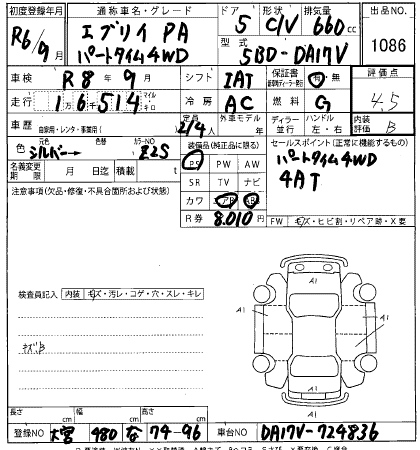 初度登録年月 通称車名・グレード ドア 形状 排気量 出品NO.
R6/9月 エブリイ PA 5 C/V 660cc 1086
パートタイム4WD 型式 5BD-DA17V
車検 R8年9月 シフト IAT 保証書 有・無 評価点
走行 16,514 マイル キロ 冷房 AC 燃料 G 4.5
車歴 自家用・レンタ・事業用( ) 定員 2/4 外車モデル年 ディーラー 並行 ハンドル 左・右 内装評価 B
色 元色 シルバー 色替 カラーNO Z2S 装備品(純正品に限る) セールスポイント(正常に機能するもの)
名義変更期限 月 日迄 積載量 t PS PW AW パートタイム4WD
注意事項(欠品・修復・不具合箇所および状態) SR TV ナビ 4AT
カワ エアB ABS
R券 8,010円 FW キズ・ヒビ割・リペア跡・X要
検査員記入 内装 キズ・汚レ・コゲ・穴・スレ・キレ
キズ小
A1
A1
A1
A1
長さ cm 幅 cm 高さ cm
登録NO 大宮 480 な 74-96 車台NO DA17V-724836